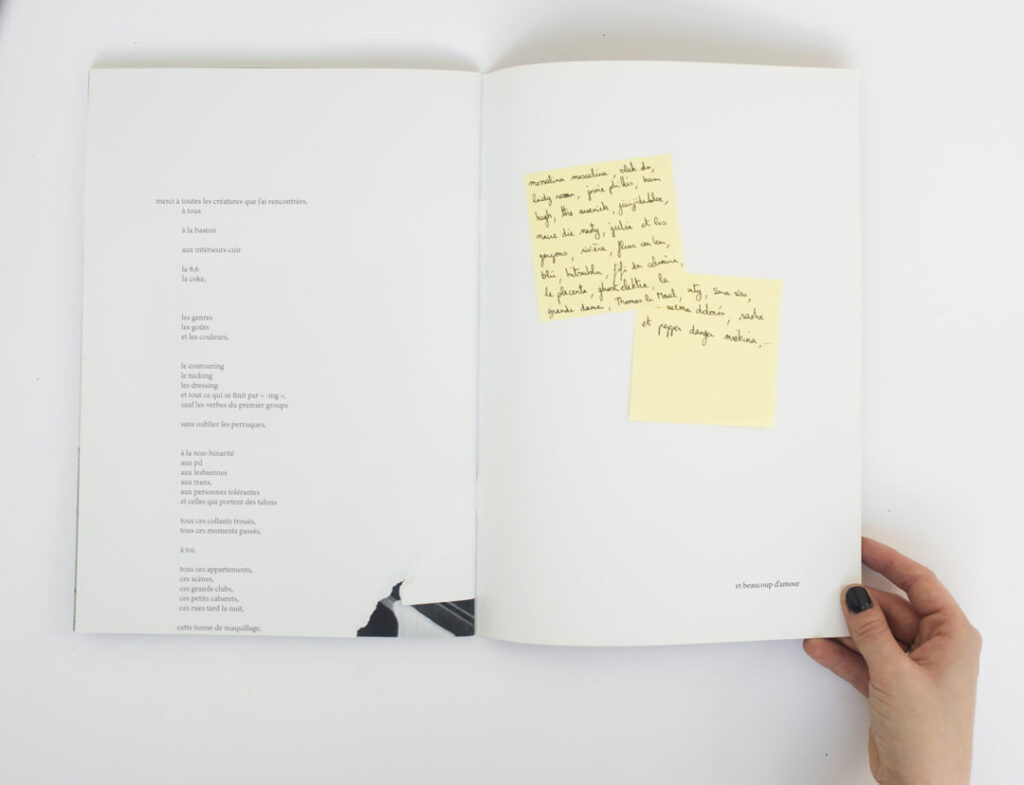 merci à toutes les créatures que j'ai rencontrées,
à tous
à la baston
aux intérieurs cuir
la 8.6
la coke,
les genres
les goûts
et les couleurs,
le contouring
le tucking
les dressing
et tout ce qui se finit par « -ing »,
sauf les verbes du premier groupe
sans oublier les perruques,
à la non-binarité
aux pd
aux lesbiennes
aux trans,
aux personnes tolérantes
et celles qui portent des talons
tous ces collants troués,
tous ces moments passés,
à toi,
tous ces appartements,
ces scènes,
ces grands clubs,
ces petits cabarets,
ces rues tard la nuit,
cette tonne de maquillage,
messalina mescalina,
lady
hugh, the maverick,
julia et les
garçons, rivière, fleur
le placenta, ghost elektra, la
grande dame, Thomas le Maal,
sara sis,
selma dolorès, sasha
et pepper danger
et beaucoup d'amour